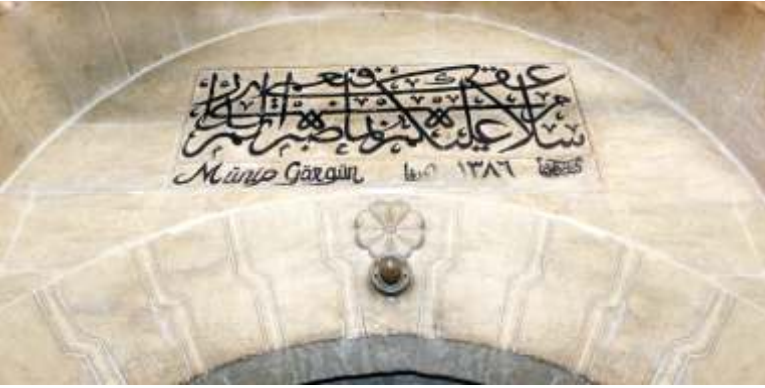 سلام عليكم بما صبرتم فنعم عقبى الدار
Münip Görgün ١٣٨٦